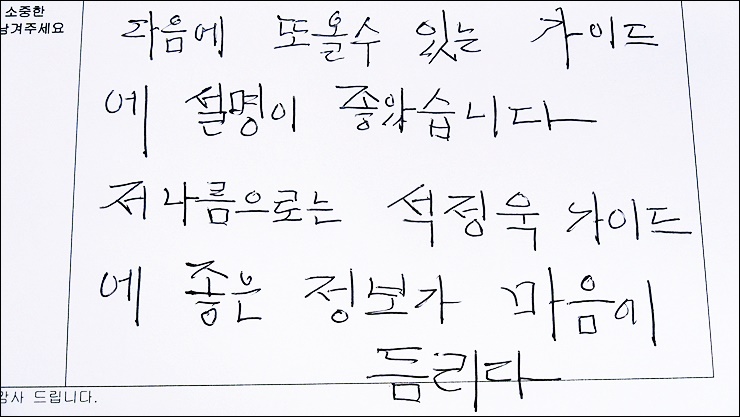 소중한
남겨주세요
다음에 또올수 있는 가이드
에 설명이 좋았습니다
저나름으로는 석정욱 가이드
에 좋은 정보가 마음이
듬리다
감사 드립니다.